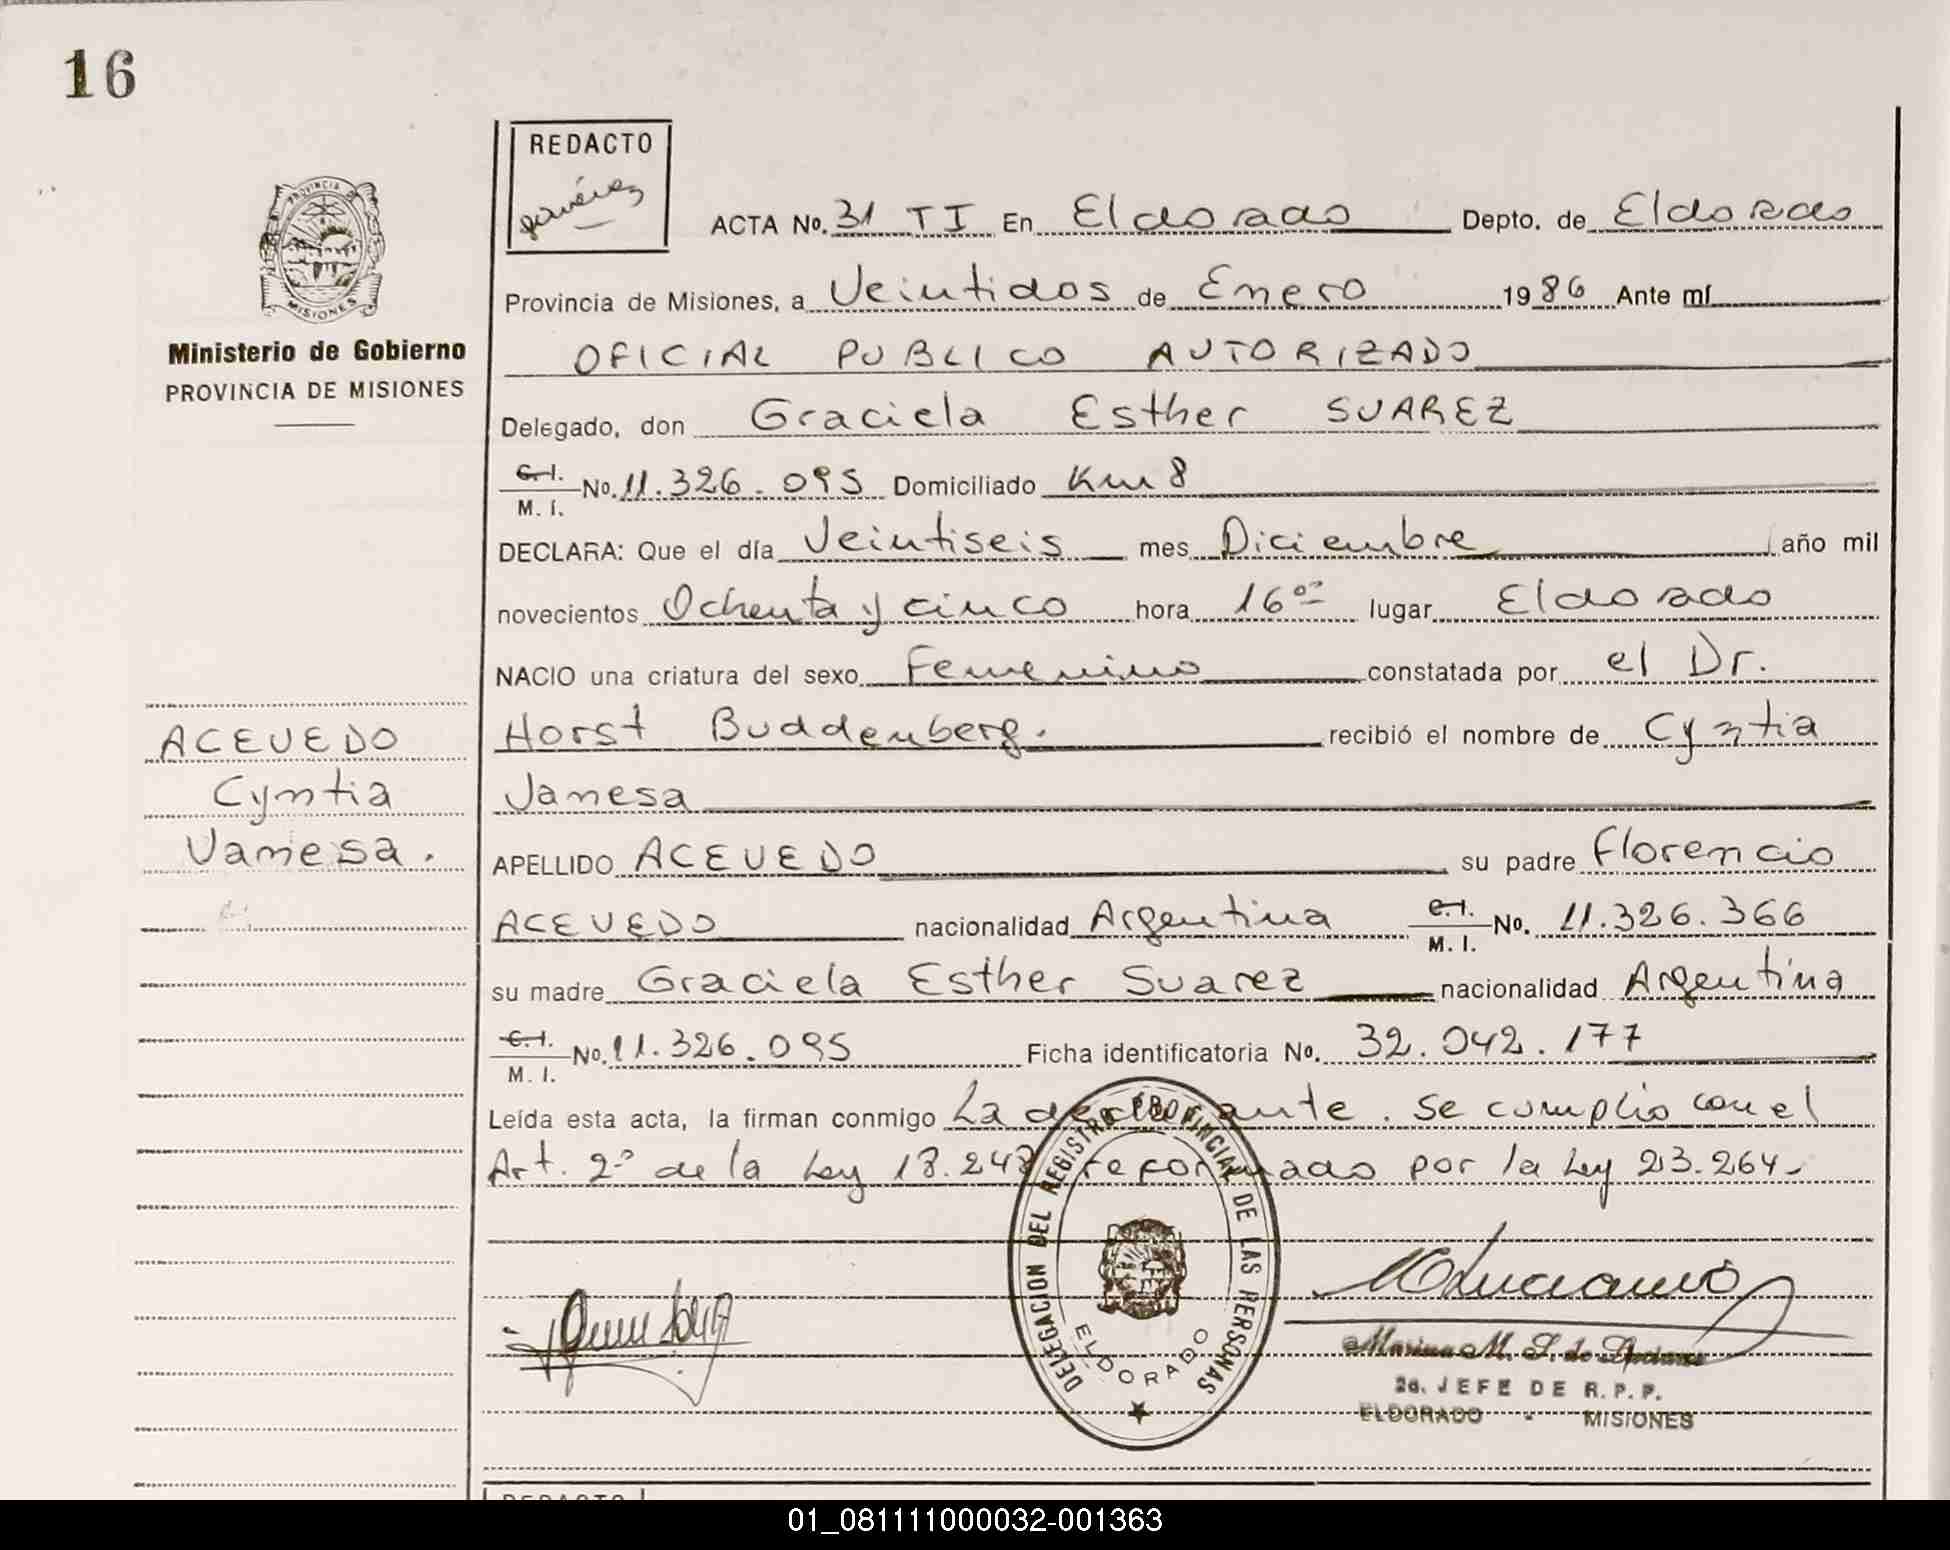 16
REDACTO
ACTA No. 31 TI En Eldorado Depto. de Eldorado
Provincia de Misiones, a Veintidos de Enero 1986 Ante mí
OFICIAL PUBLICO AUTORIZADO
Delegado, don Graciela Esther SUAREZ
C.I.
M. I. No. 11.326.095 Domiciliado Km 8
DECLARA: Que el día Veintiseis mes Diciembre año mil
novecientos Ochenta y cinco hora 16oo lugar Eldorado
NACIO una criatura del sexo Femenino constatada por el Dr.
Horst Buddenberg. recibió el nombre de Cyntia
Vanesa
APELLIDO ACEVEDO su padre Florencio
ACEVEDO nacionalidad Argentina C.I.
M. I. No. 11.326.366
su madre Graciela Esther Suarez nacionalidad Argentina
C.I.
M. I. No. 11.326.095 Ficha identificatoria No. 32.042.177
Leída esta acta, la firman conmigo La declarante. Se cumplio con el
Art. 2º de la Ley 18.248 reformado por la Ley 23.264-
PROVINCIA DE
MISIONES
Ministerio de Gobierno
PROVINCIA DE MISIONES
ACEVEDO
Cyntia
Vanesa.
DELEGACION DEL REGISTRO PROVINCIAL DE LAS PERSONAS
ELDORADO
Marina M. S. de Luciano
2a. JEFE DE R. P. P.
ELDORADO - MISIONES
REDACTO
01_081111000032-001363